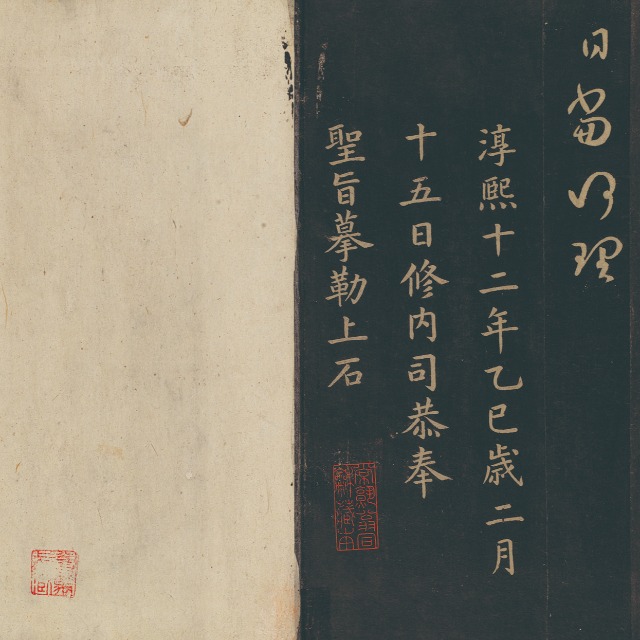 日當行理
淳熙十二年乙巳歲二月
十五日修內司恭奉
聖旨摹勒上石